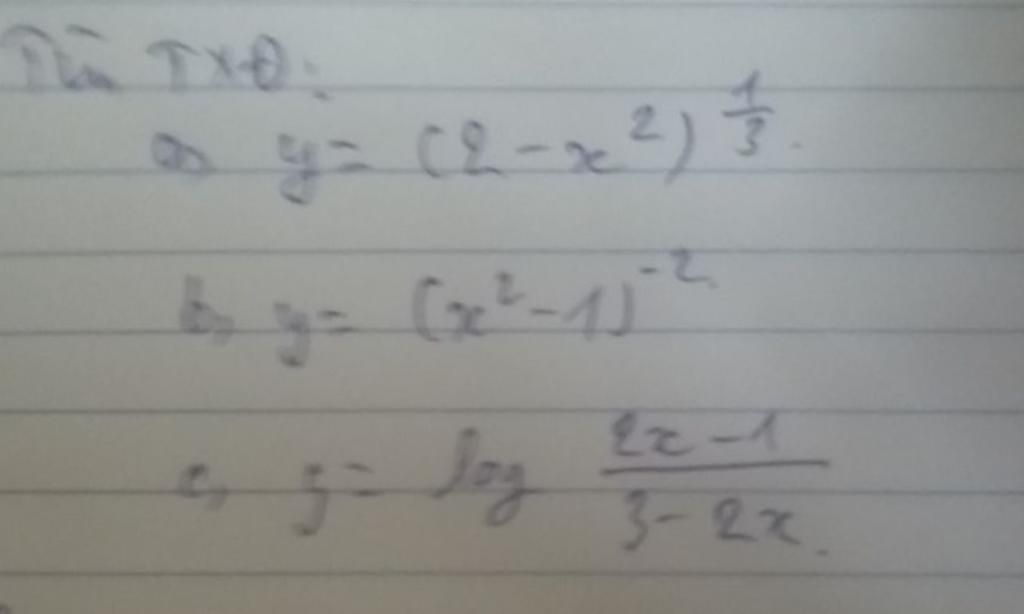 Tìm TXĐ:
a, y = (2 - x²)^{\frac{1}{3}}.
b, y = (x² - 1)^{-2}.
c, y = log \frac{2x - 1}{3 - 2x}.